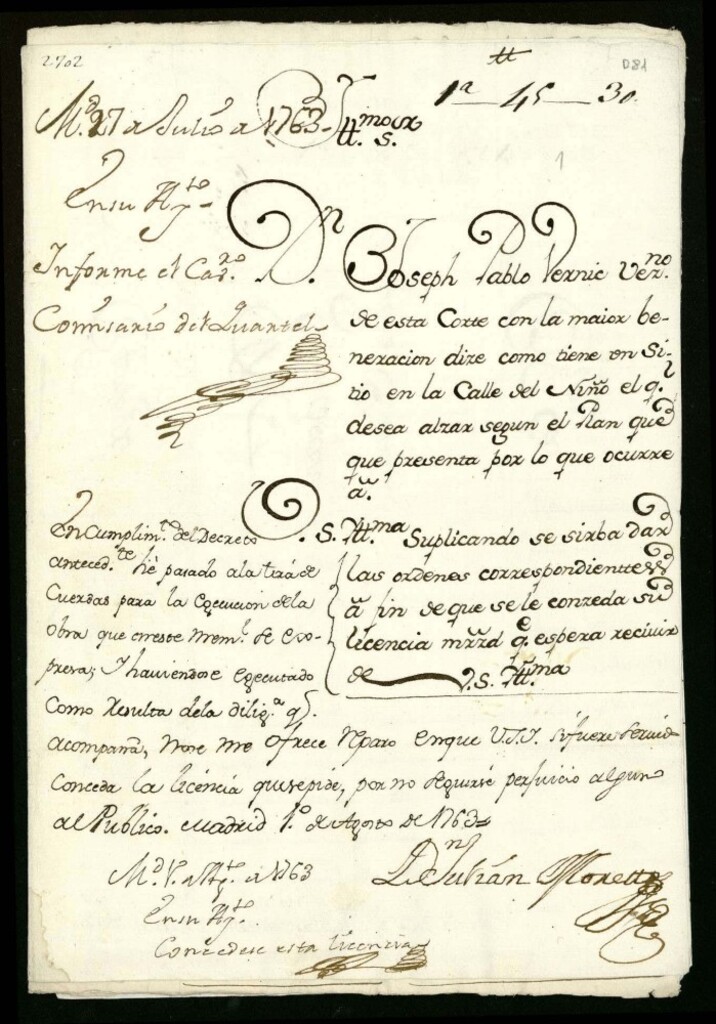 2702
D81
tt
1ª — 45 — 30
M.d 27 a Julio a 1763
Ill.mo Sr
1
En su Ay.to
Informe el Cav.ro
Comisario del Quartel
D.n Joseph Pablo Vernic vez.no
de esta Corte con la maior be-
neracion dize como tiene un Si-
tio en la Calle del Niño el q.l
desea alzar segun el Plan que
que presenta por lo que ocurre
â.
V. S. Ill.ma Suplicando se sirba dar
las ordenes correspondientes
â fin de que se le conzeda su
licencia mrzd q.e espera recivir
de V. S. Ill.ma
En Cumplim.to del Decreto
anteced.te hê pasado a la tira de
Cuerdas para la egecucion de la
obra que en este Mem.l se ex-
presa; Y haviendose egecutado
Como resulta de la dilig.a q.e
acompaña, no se me ofrece reparo en que V.S.I. si fuere servido
Conceda la licencia que se pide, por no seguirse perjuicio alguno
al Publico. Madrid 1.º de Agosto de 1763=
D.n Julián Moret
M.d 1.º a Ag.to a 1763
En su Ay.to
Concedese esta licencia